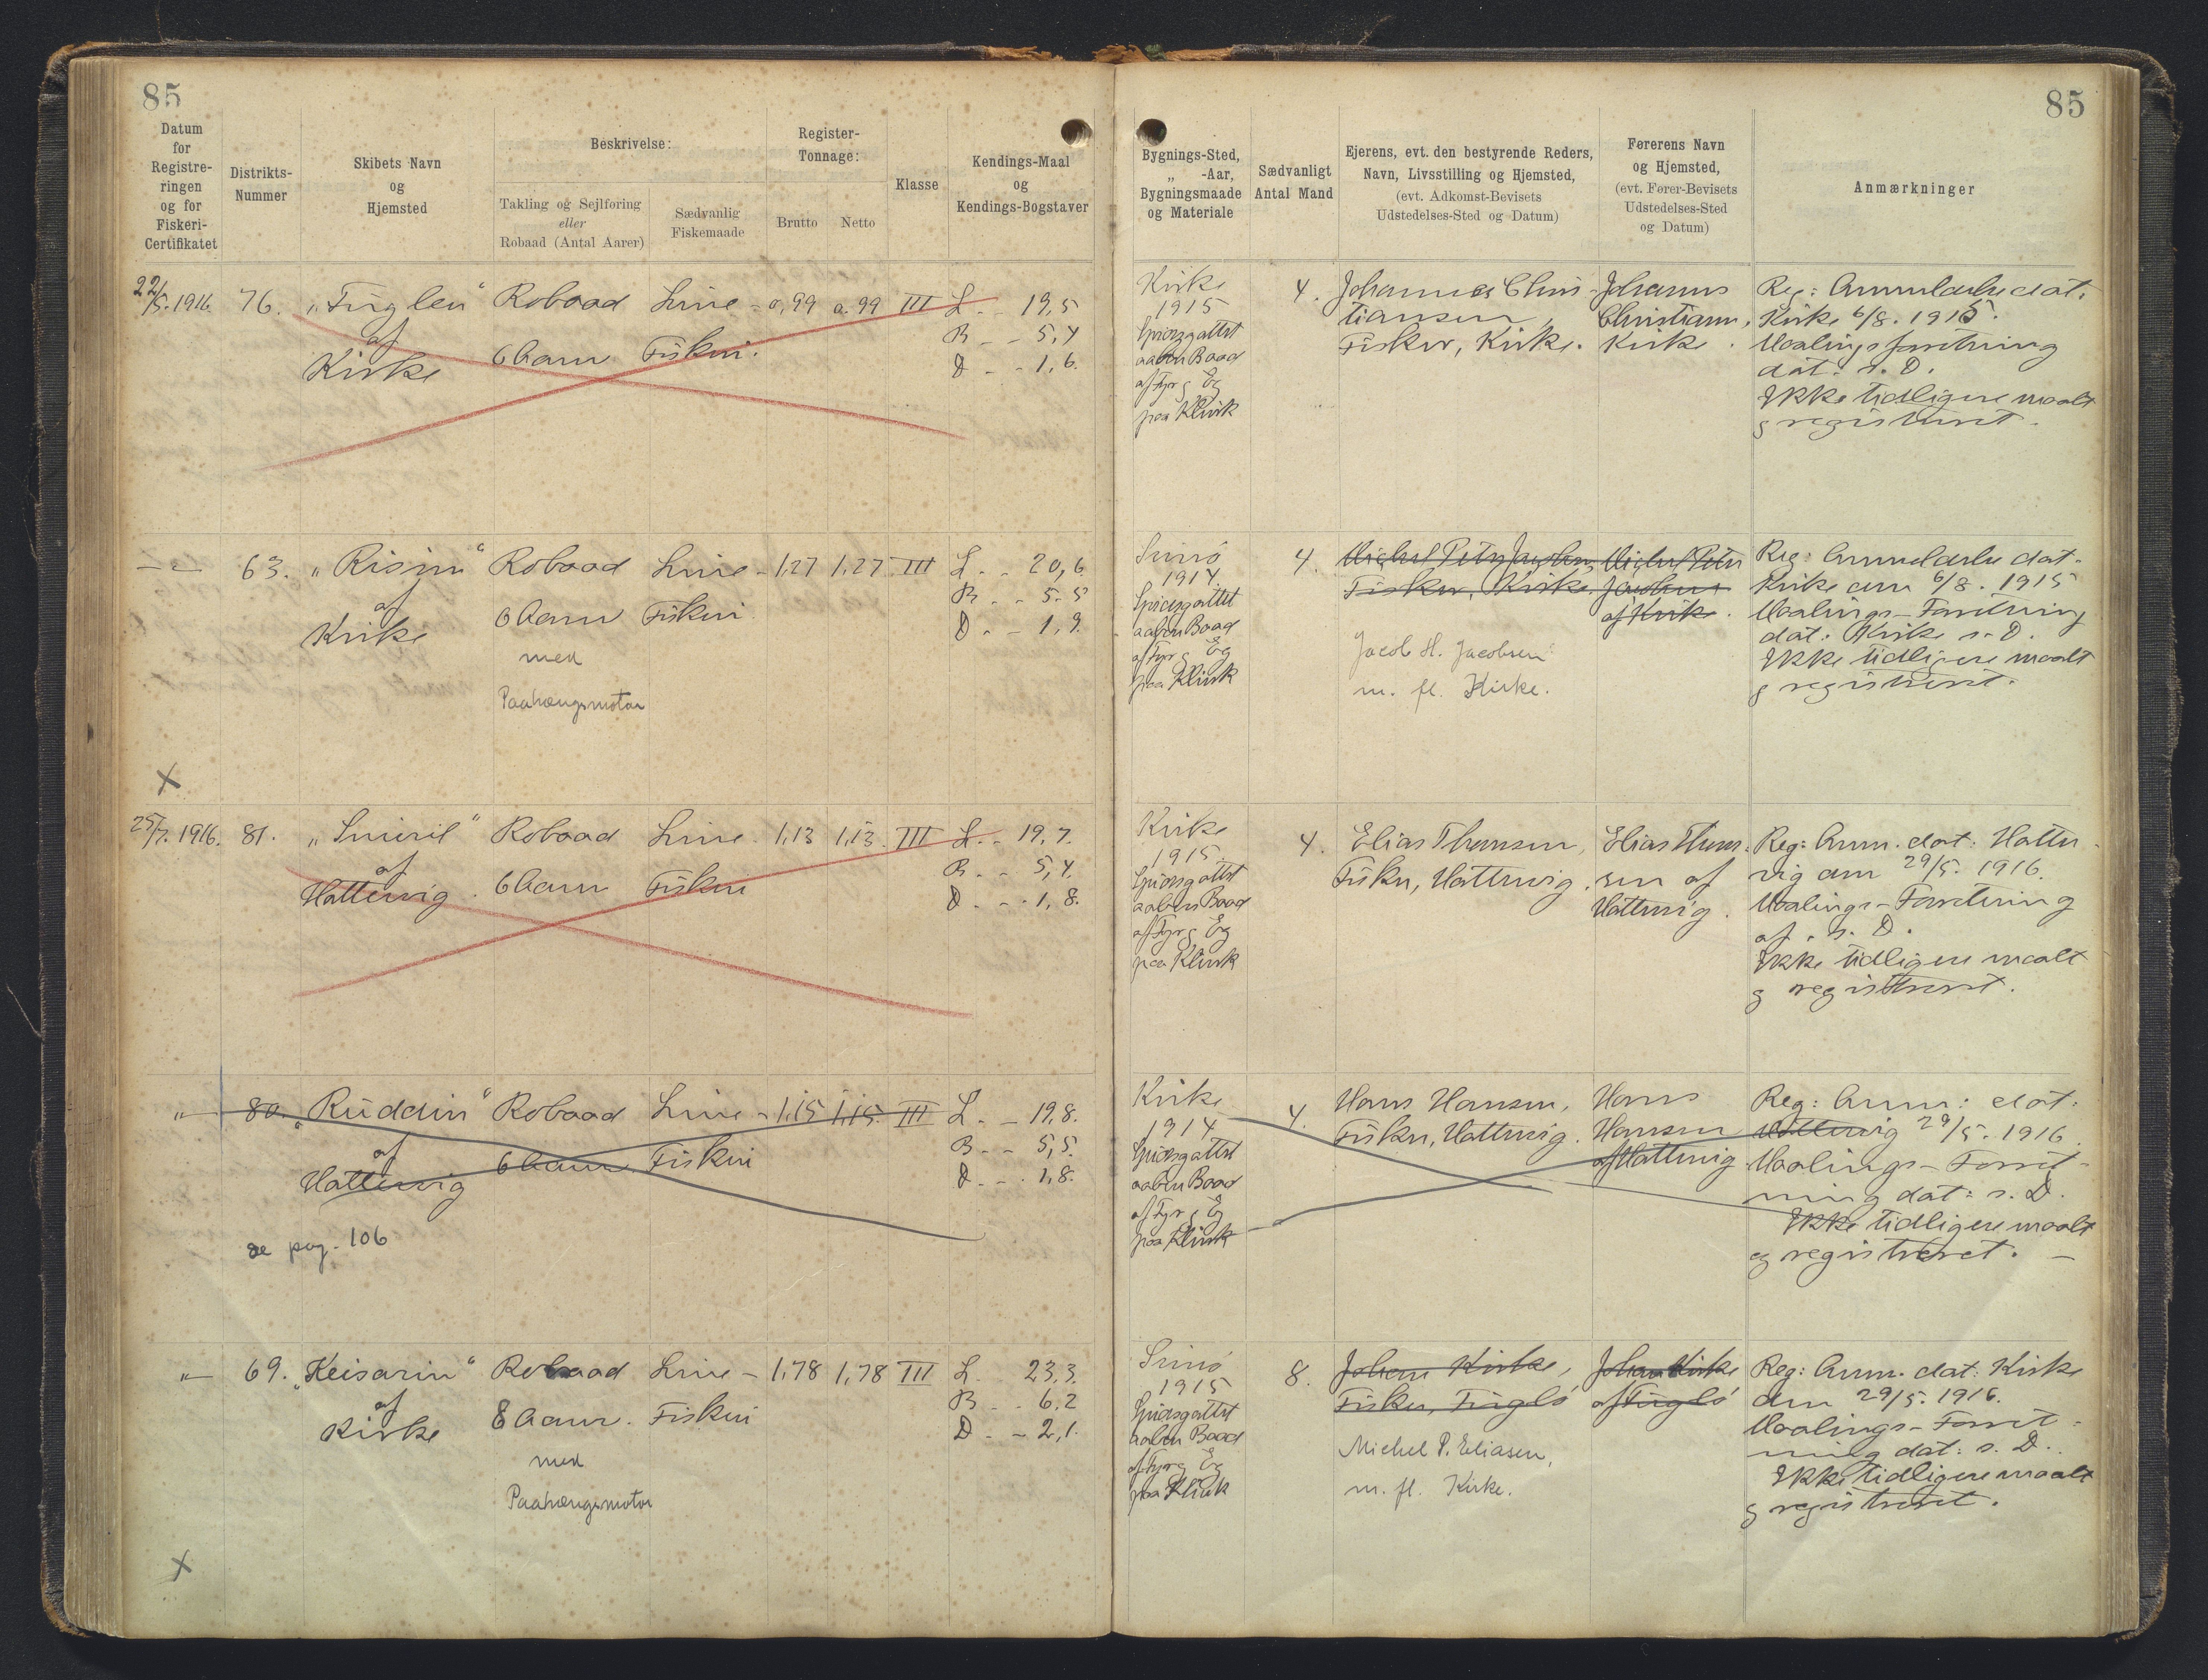 85
Datum
for
Registre-
ringen
og for
Fiskeri-
Certifikatet
Distrikts-
Nummer
Skibets Navn
og
Hjemsted
Beskrivelse:
Takling og Sejlføring
eller
Robaad (Antal Aarer)
Sædvanlig
Fiskemaade
Register-
Tonnage:
Brutto
Netto
Klasse
Kendings-Maal
og
Kendings-Bogstaver
85
Bygnings-Sted,
„ -Aar,
Bygningsmaade
og Materiale
Sædvanligt
Antal Mand
Ejerens, evt. den bestyrende Reders,
Navn, Livsstilling og Hjemsted,
(evt. Adkomst-Bevisets
Udstedelses-Sted og Datum)
Førerens Navn
og Hjemsted,
(evt. Fører-Bevisets
Udstedelses-Sted
og Datum)
Anmærkninger
22/5. 1916. 76. „Fuglen“ Robaad Line- 0,99 0.99 III L. - 19,5
af
Kirke
6 Aarer Fiskeri.
B - - 5,4
D - - 1,6.
Kirke
1915
Spidsgattet
aaben Baad
af Fyr g Eg
paa Klink
4.
Johannes Chris-
tiansen,
Fisker, Kirke.
Johannes
Christians,
Kirke.
Reg: Anmeldelse dat:
Kirke 6/8. 1915.
Maalingsforretning
dat: s. D.
Ikke tidligere maalt
g registreret.
63. „Risin“ Robaad Line- 1,27 1,27 III L. - 20,6
af
Kirke
6 Aarer Fiskeri
med
Paahængsmotor
B - - 5.5
D. - 1,9.
Svinø
1914
Spidsgattet
aaben Baad
af Fyr g Eg
paa Klink
4.
Michel Peter Jacobsen,
Fisker, Kirke.
Jacob H. Jacobsen
m. fl. Kirke.
Michel Peter
Jacobsen
af Kirke.
Reg: Anmeldelse dat-
Kirke den 6/8. 1915
Maalings-Forretning
dat: Kirke s. D.
Ikke tidligere maalt
g registreret.
X
25/7. 1916. 81. „Smiril“ Robaad Line. 1,13 1,13. III L. - 19,7.
af
Hattervig.
6 Aarer Fiskeri
B. - - 5,4.
D. - - 1,8.
Kirke
1915
Spidsgattet
aaben Baad
af Fyr g Eg
paa Klink
4.
Elias Thomsen,
Fisker, Hattervig.
Elias Thom-
sen af
Hattervig.
Reg: Anm. dat: Hatter-
vig den 29/5. 1916.
Maalings-Forretning
af s. D.
Ikke tidligere maalt
g registreret.
„ 80. „Ruddin“ Robaad Line- 1,15 1,15. III L. - 19,8.
af
Hattervig
6 Aarer Fiskeri
B. - - 5,5.
D. - - 1,8.
se pag. 106
Kirke
1914
Spidsgattet
aaben Baad
af Fyr g Eg
paa Klink
4.
Hans Hansen,
Fisker, Hattervig.
Hans
Hansen
af Hattervig
Reg: Anm: dat:
Hattervig 29/5. 1916.
Maalings-Forret-
ning dat: s. D.
Ikke tidligere maalt
og registreret. -
„ 69. „Keisarin“ Robaad Line- 1,78 1,78 III L. 23.3.
af
Kirke
8 Aarer. Fiskeri
med
Paahængsmotor
B - - 6.2
D - - 2,1.
Svinø
1915
Spidsgattet
aaben Baad
af Fyr g Eg
paa Klink
8.
Johan Kirke,
Fisker, Fuglø
Michel P. Eliasen,
m. fl. Kirke.
Johan Kirke
af Fuglø
Reg: Anm. dat: Kirke
den 29/5. 1916.
Maalings-Forret-
ning dat: s. D.
Ikke tidligere maalt
g registreret.
X